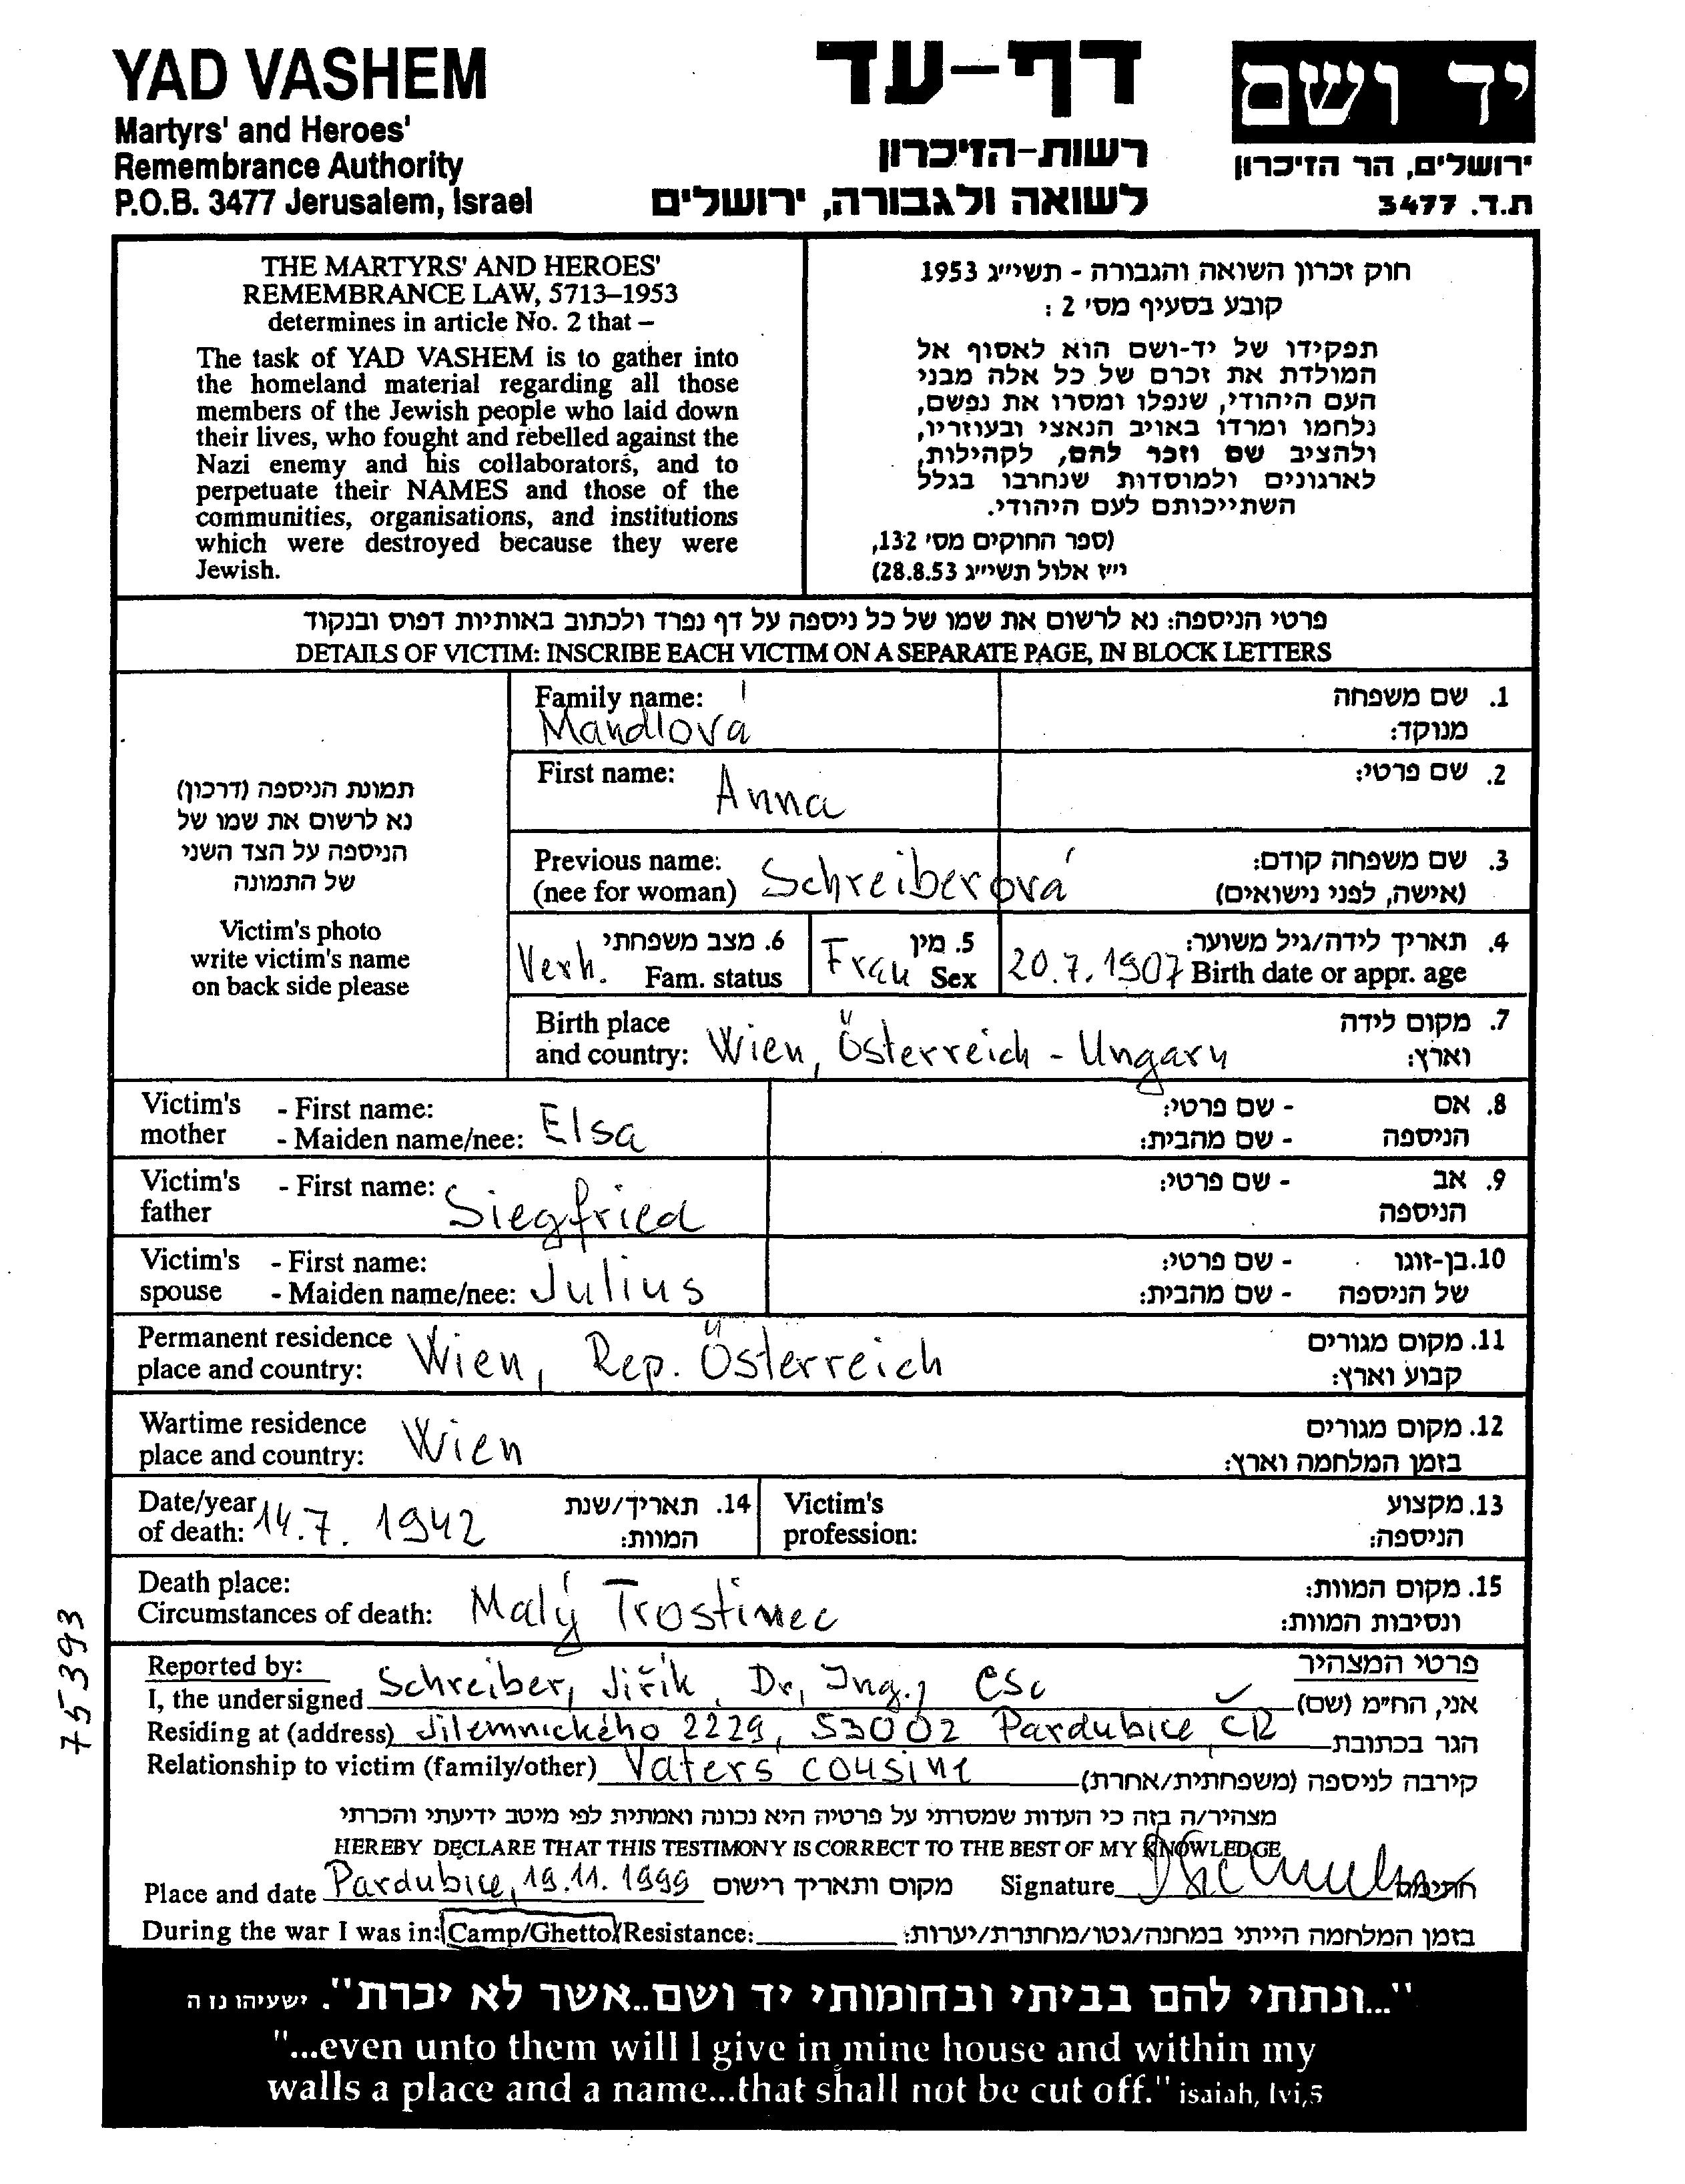 YAD VASHEM
Martyrs' and Heroes'
Remembrance Authority
P.O.B. 3477 Jerusalem, Israel
דף-עד
רשות-הזיכרון
לשואה ולגבורה, ירושלים
יד ושם
ירושלים, הר הזיכרון
ת.ד. 3477
THE MARTYRS' AND HEROES'
REMEMBRANCE LAW, 5713–1953
determines in article No. 2 that –
The task of YAD VASHEM is to gather into
the homeland material regarding all those
members of the Jewish people who laid down
their lives, who fought and rebelled against the
Nazi enemy and his collaborators, and to
perpetuate their NAMES and those of the
communities, organisations, and institutions
which were destroyed because they were
Jewish.
חוק זכרון השואה והגבורה - תשי״ג 1953
קובע בסעיף מס׳ 2 :
תפקידו של יד-ושם הוא לאסוף אל
המולדת את זכרם של כל אלה מבני
העם היהודי, שנפלו ומסרו את נפשם,
נלחמו ומרדו באויב הנאצי ובעוזריו,
ולהציב שם וזכר להם, לקהילות,
לארגונים ולמוסדות שנחרבו בגלל
השתייכותם לעם היהודי.
(ספר החוקים מס׳ 132,
י״ז אלול תשי״ג 28.8.53)
פרטי הניספה: נא לרשום את שמו של כל ניספה על דף נפרד ולכתוב באותיות דפוס ובנקוד
DETAILS OF VICTIM: INSCRIBE EACH VICTIM ON A SEPARATE PAGE, IN BLOCK LETTERS
תמונת הניספה (דרכון)
נא לרשום את שמו של
הניספה על הצד השני
של התמונה
Victim's photo
write victim's name
on back side please
Family name: 1. שם משפחה
Mandlová מנוקד:
First name: Anna 2. שם פרטי:
Previous name: 3. שם משפחה קודם:
(nee for woman) Schreiberová (אישה, לפני נישואים)
Verh. 6. מצב משפחתי Fam. status
Frau 5. מין Sex
20.7.1907 4. תאריך לידה/גיל משוער: Birth date or appr. age
Birth place 7. מקום לידה
and country: Wien, Österreich - Ungarn וארץ:
Victim's - First name: - שם פרטי: 8. אם
mother - Maiden name/nee: Elsa - שם מהבית: הניספה
Victim's - First name: Siegfried - שם פרטי: 9. אב
father הניספה
Victim's - First name: - שם פרטי: 10. בן-זוגו
spouse - Maiden name/nee: Julius - שם מהבית: של הניספה
Permanent residence 11. מקום מגורים
place and country: Wien, Rep. Österreich קבוע וארץ:
Wartime residence 12. מקום מגורים
place and country: Wien בזמן המלחמה וארץ:
Date/year 14. תאריך/שנת
of death: 14.7. 1942 המוות:
Victim's 13. מקצוע
profession: הניספה:
Death place: 15. מקום המוות:
Circumstances of death: Malý Trostinec ונסיבות המוות:
75393
Reported by: פרטי המצהיר
I, the undersigned Schreiber, Jiřík, Dr, Ing., CSc אני, הח״מ (שם)
Residing at (address) Jilemnického 2229, 53002 Pardubice, ČR הגר בכתובת
Relationship to victim (family/other) Vaters cousine קירבה לניספה (משפחתית/אחרת)
מצהיר/ה בזה כי העדות שמסרתי על פרטיה היא נכונה ואמתית לפי מיטב ידיעתי והכרתי
HEREBY DECLARE THAT THIS TESTIMONY IS CORRECT TO THE BEST OF MY KNOWLEDGE
Place and date Pardubice, 19.11.1999 מקום ותאריך רישום Signature חתימה
During the war I was in: Camp/Ghetto/Resistance: בזמן המלחמה הייתי במחנה/גטו/מחתרת/יערות:
"...ונתתי להם בביתי ובחומותי יד ושם..אשר לא יכרת". ישעיהו נו ה
"...even unto them will I give in mine house and within my
walls a place and a name...that shall not be cut off." isaiah, lvi,5